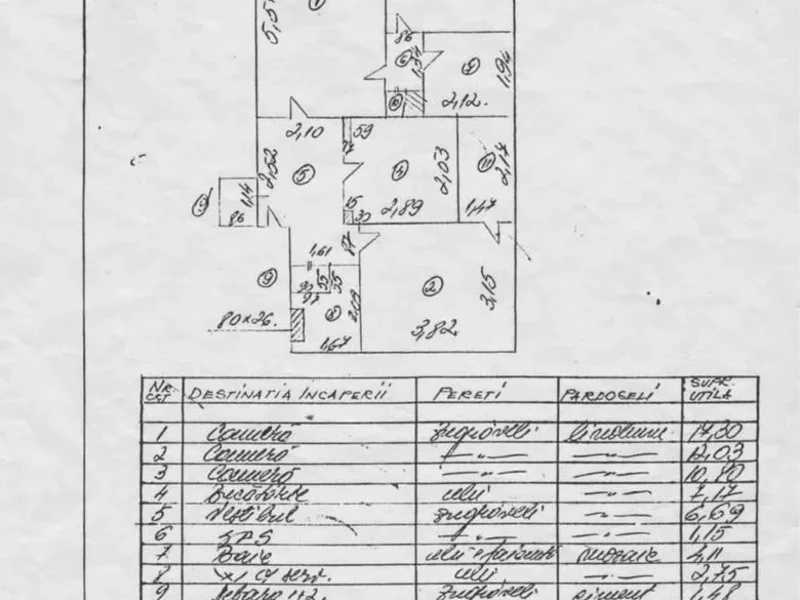 5,5
1
86
6
1,34
1,94
2,12.
6
2,10
59
2,52
5
4
2,03
11
2,17
1,14
86
15
30
2,89
1,47
87
1,61
9
2
3,15
55
55
2,09
8
80×26.
3,82.
1,67
NR. CST DESTINATIA INCAPERII PERETI PARDOSELI SUPR. UTILA
1 Cameră zugrăveli linoleum 17,30
2 Cameră —"— —"— 12,03
3 Cameră —"— —"— 10,80
4 Bucătărie ulii —"— 7,17
5 Vestibul zugrăveli —"— 6,69
6 S.A.S —"— —"— 1,15
7 Baie ulii + faianță mozaic 4,11
8 serv. ulii —"— 2,75
9 1+2. zugrăveli ciment 1,48